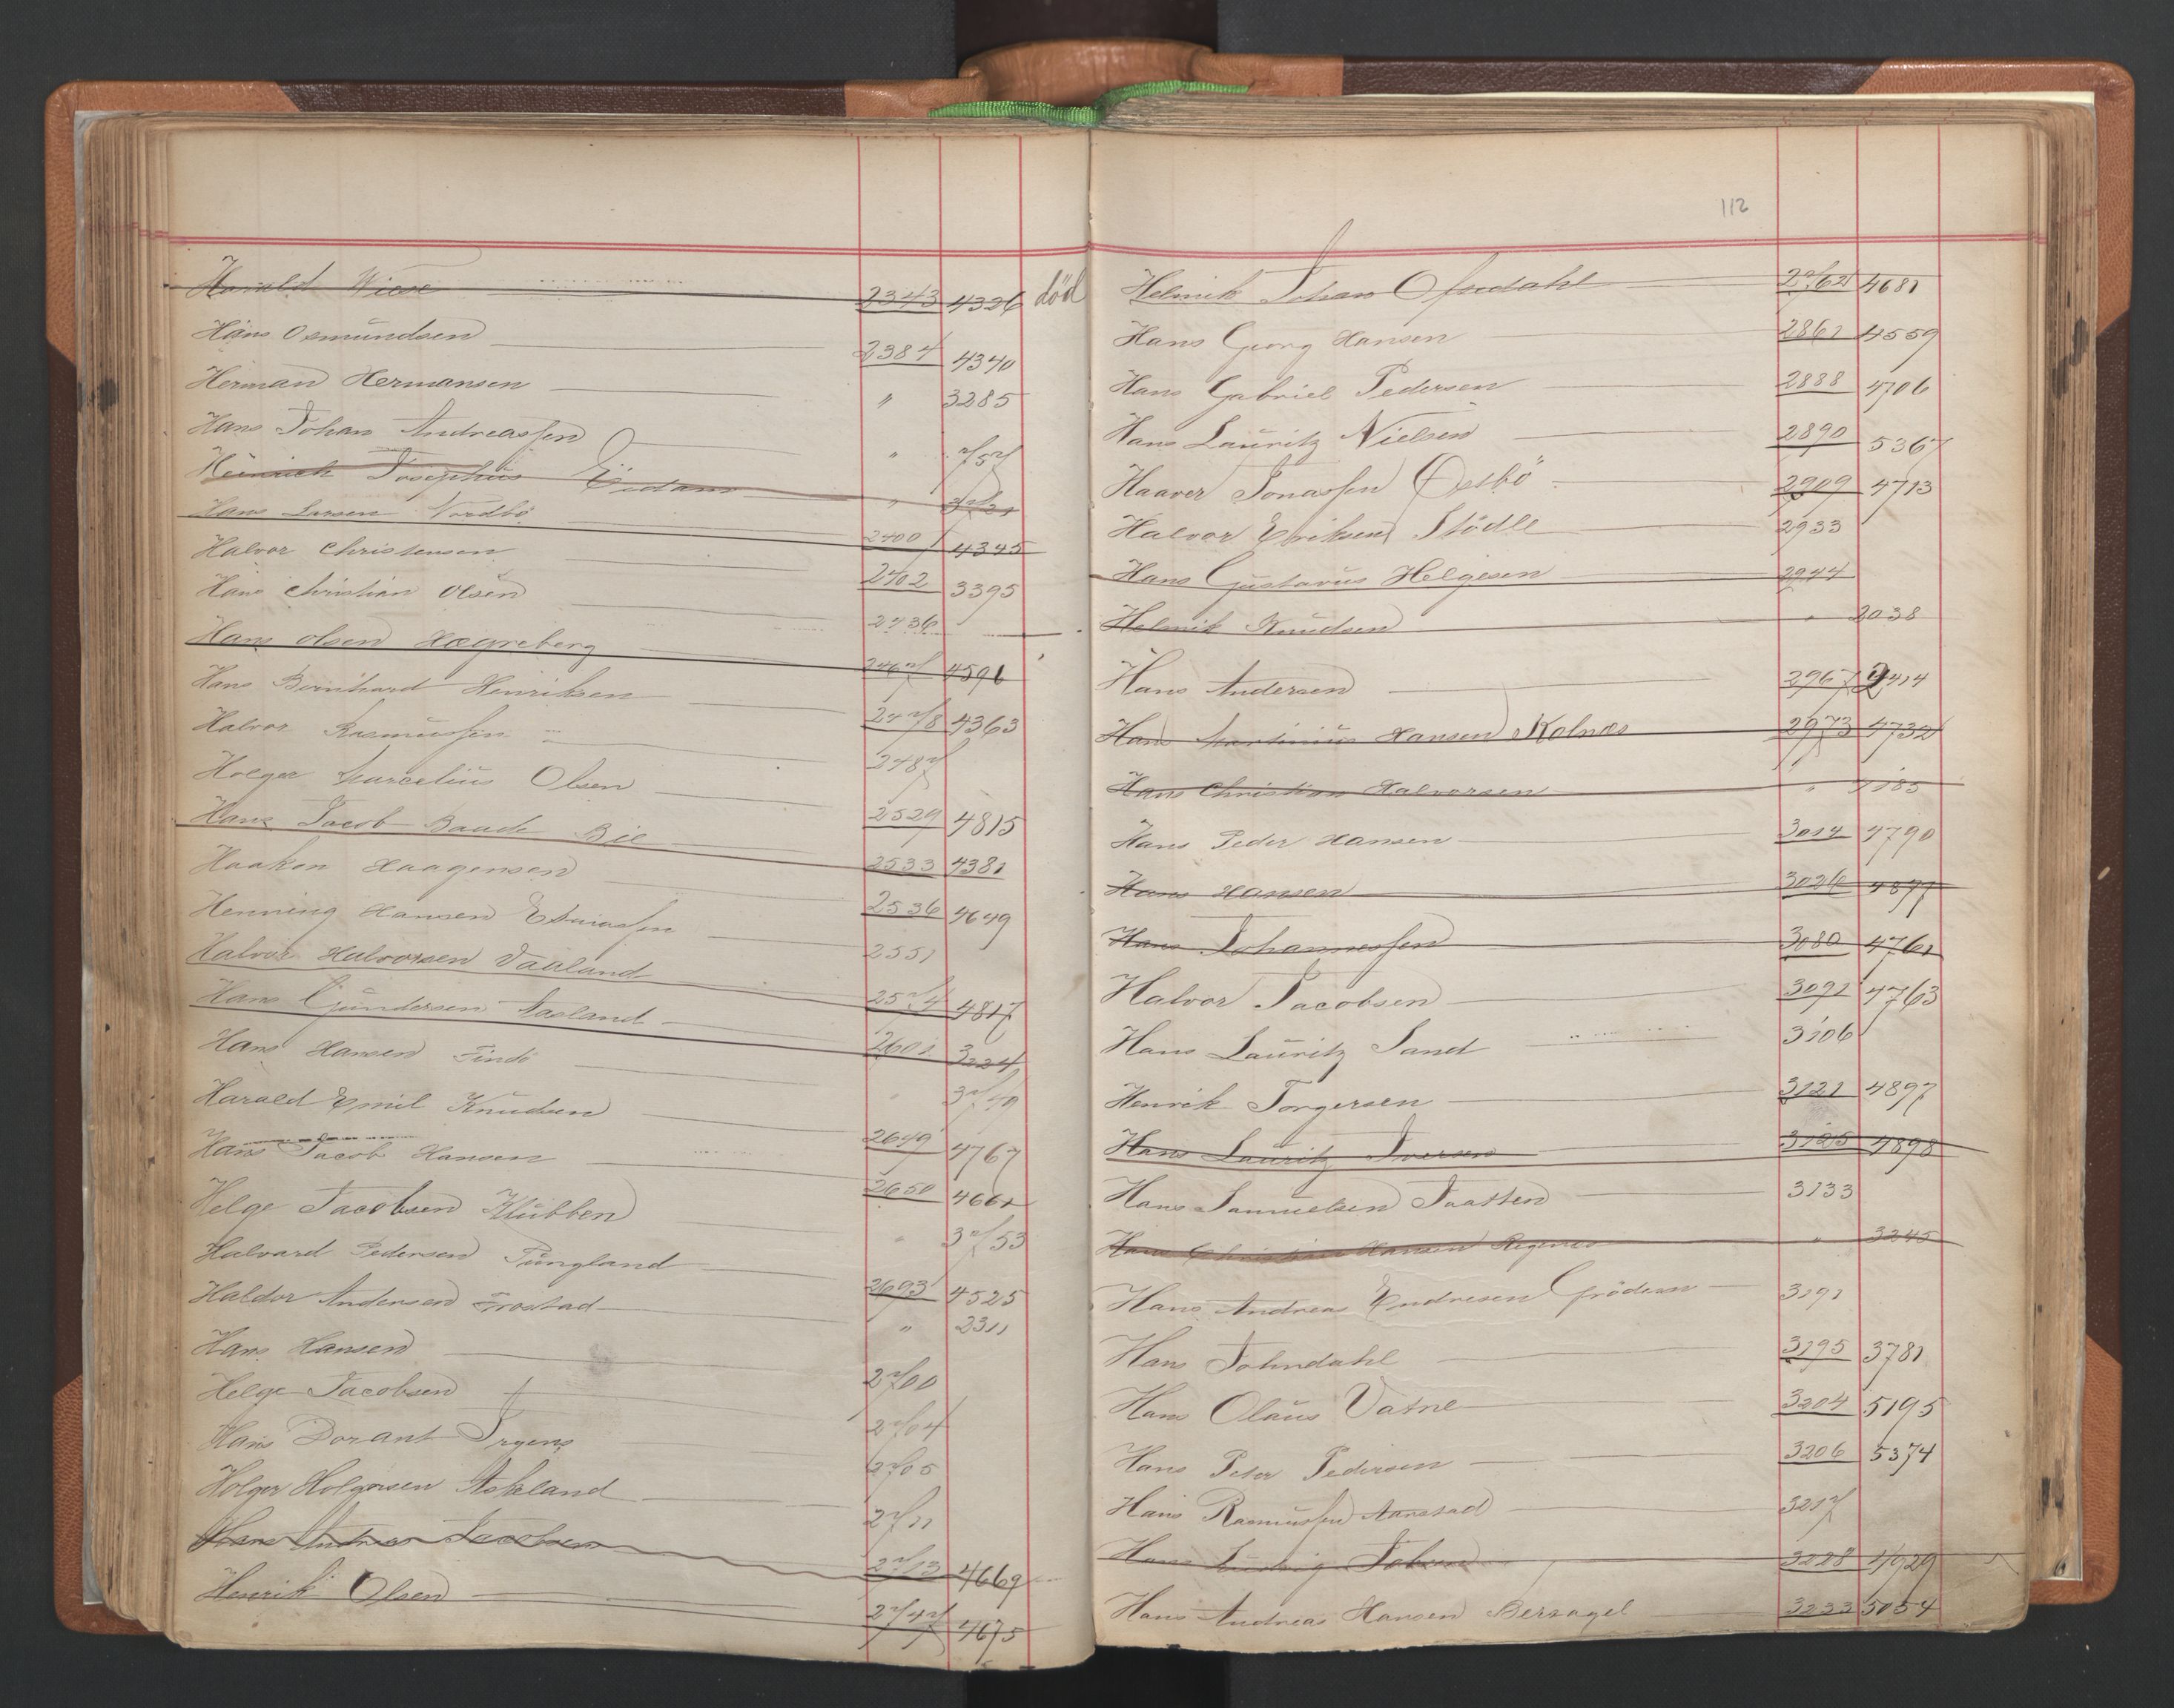 Harald Wiese 2343 4326 död
Hans Osmundsen 2384 4340
Herman Hermansen " 3285
Hans Johan Andreassen " 757
Heinrich Josephus Eidam "
Hans Larsen Nordbö 2400 4345
Halvor Christensen 2402 3395
Hans Christian Olsen 2436
Hans Olsen Hægreberg 2467 4591
Hans Bernhard Henriksen 2478 4363
Halvor Rasmussen 2487
Holger Marcelius Olsen 2529 4815
Hans Jacob Baade Bie 2533 4381
Haaken Haagensen 2536 4649
Henning Hansen 2551
Halvor Halvorsen Vaaland 2574 4817
Hans Gundersen Aasland 2601 3224
Hans Hansen Findö " 3749
Harald Emil Knudsen 2649 4767
Hans Jacob Hansen 2650 4661
Helge Jacobsen Klubben " 3753
Halvard Pedersen Tungland 2693 4525
Haldor Andersen Frostad " 2311
Hans Hansen 2700
Helge Jacobsen 2704
Hans Dorant Irgens 2705
Holger Holgersen Askeland 2711
Hans Andreas Jacobsen 2713 4669
Henrik Olsen 2747 4675
112
Helmik Johan Ofsedahl 2762 4681
Hans Georg Hansen 2861 4559
Hans Gabriel Pedersen 2888 4706
Hans Lauritz Nielsen 2890 5367
Haaver Jonassen Østbö 2909 4713
Halvor Eriksen Stödle 2933
Hans Gustavus Helgesen 2944
Helmik Knudsen " 2038
Hans Andersen 2967 2414
Hans Martinius Hansen Kolnæs 2973 4732
Hans Christian Halvorsen "
Hans Peder Hansen 3014 4790
Hans Hansen 3026 4877
Hans Johannessen 3080 4761
Halvor Jacobsen 3091 4763
Hans Lauritz Sand 3106
Henrik Torgersen 3121 4897
Hans Lauritz Iversen 3125 4898
Hans Samuelsen Taasten 3133
Hans Christian Hansen " 3245
Hans Andreas Endresen Grödem 3191
Hans Johndahl 3195 3781
Hans Olaus Vatne 3204 5195
Hans Peter Pedersen 3206 5374
Hans Rasmussen Aarstad 3217
Hans Ludvig 3228 4929
Hans Andreas Hansen Bersagel 3233 5054